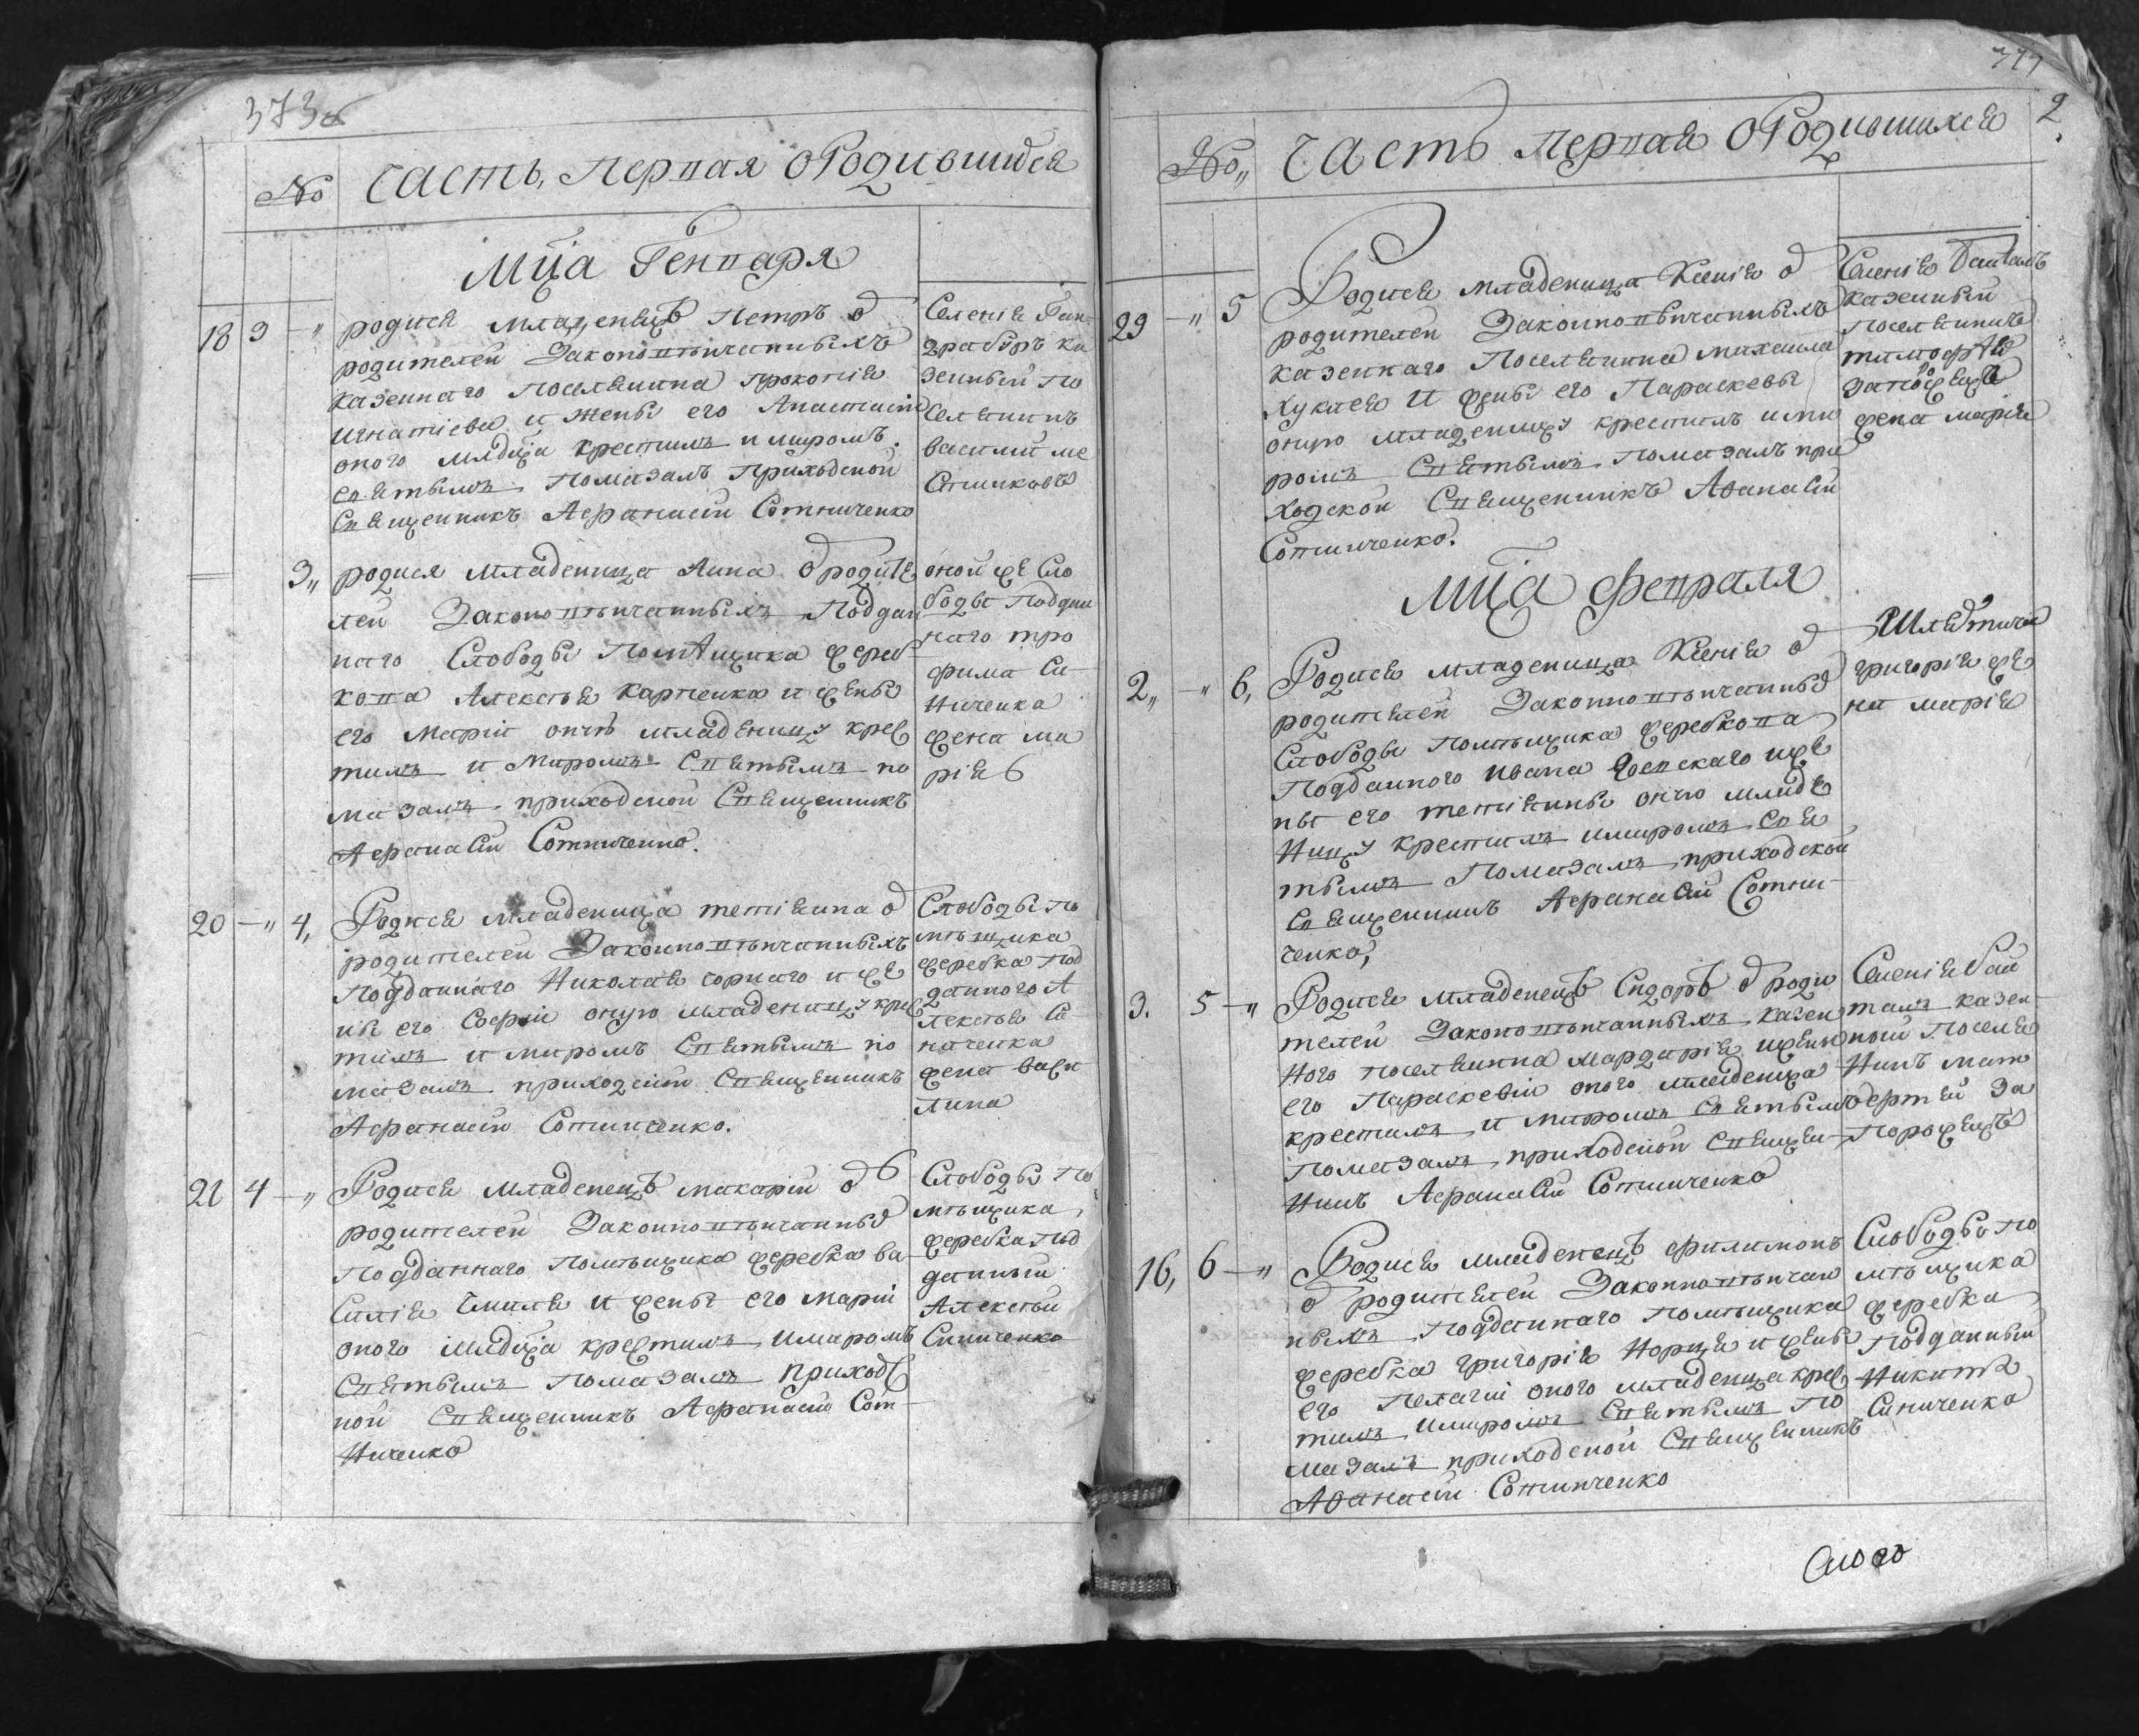 373об
№ Часть, Первая о Родившихся
Мца Генваря
18 3 " родися младенецъ Петръ ѿ
родителей Законновѣнчанныхъ
казеннаго поселянина Прокопія
Игнатіева и жены его Анастасіи
оного млдца крестилъ и миромъ
святымъ помазалъ приходской
священникъ Афанасій Сотниченко
Селенія
казенный по
селянинъ
василий
3" родися младеница Анна ѿ родите
лей Законновѣнчанныхъ поддан
наго Слободы помѣщика жереб
кова Алексѣя Карпенка и жены
его Маріи оную младеницу крес
тилъ и миромъ святымъ по
мазалъ приходской священникъ
Афанасій Сотниченко.
оной же Сло
боды поддан
наго тро
фима Си
ниченка
жена ма
рія
20 " 4, Родися младеница тетіяна ѿ
родителей Законновѣнчанныхъ
подданнаго Николая горнаго и же
ны его Софіи оную младеницу крес
тилъ и миромъ святымъ по
мазалъ приходской священникъ
Афанасій Сотниченко.
Слободы по
мѣщика
жеребка под
данного А
лексѣя Си
ниченка
жена васи
лина
21 4 " Родися младенецъ макарій ѿ
родителей Законновѣнчанныхъ
подданнаго помѣщика жеребка ва
силія и жены его маріи
оного млдца крестилъ и миромъ
святымъ помазалъ приходс
кой священникъ Афанасій Сот
ниченко
Слободы по
мѣщика
жеребка под
данный
Алексѣй
Синиченко
2
№" Часть первая о Родившихся
29 " 5 Родися младеница Ксенія ѿ
родителей Законновѣнчанныхъ
казеннаго поселянина михаила
и жены его Параскевы
оную младеницу крестилъ и ми
ромъ святымъ помазалъ при
ходской священникъ Афанасій
Сотниченко.
Селенія
казенный
поселянинъ
тимофѣя
жена марія
Мца февраля
2" " 6, Родися младеница Ксенія ѿ
родителей Законновѣнчанныхъ
Слободы помѣщика жеребкова
подданного ивана и же
ны его тетіянны оную младе
ницу крестилъ и миромъ свя
тымъ помазалъ приходской
священникъ Афанасій Сотни-
ченко,
Шляхтича
григорія же
на марія
3. 5 " Родися младенецъ Сидоръ ѿ роди
телей Законновѣнчанныхъ казен
ного поселянина мардарія и жены
его Параскевіи оного младенца
крестилъ и миромъ святымъ
помазалъ приходской священ
никъ Афанасій Сотниченко
Селенія бай
талъ казен
ной поселя
нинъ мат
фей За
порожецъ
16, 6 " Родися младенецъ филимонъ
ѿ родителей Законновѣнчан
ныхъ подданнаго помѣщика
жеребка григорія и жены
его Пелагіи оного младенца крес
тилъ и миромъ святымъ по
мазалъ приходской священникъ
Афанасій Сотниченко
Слободы по
мѣщика
жеребка
подданный
Никита
Синиченко